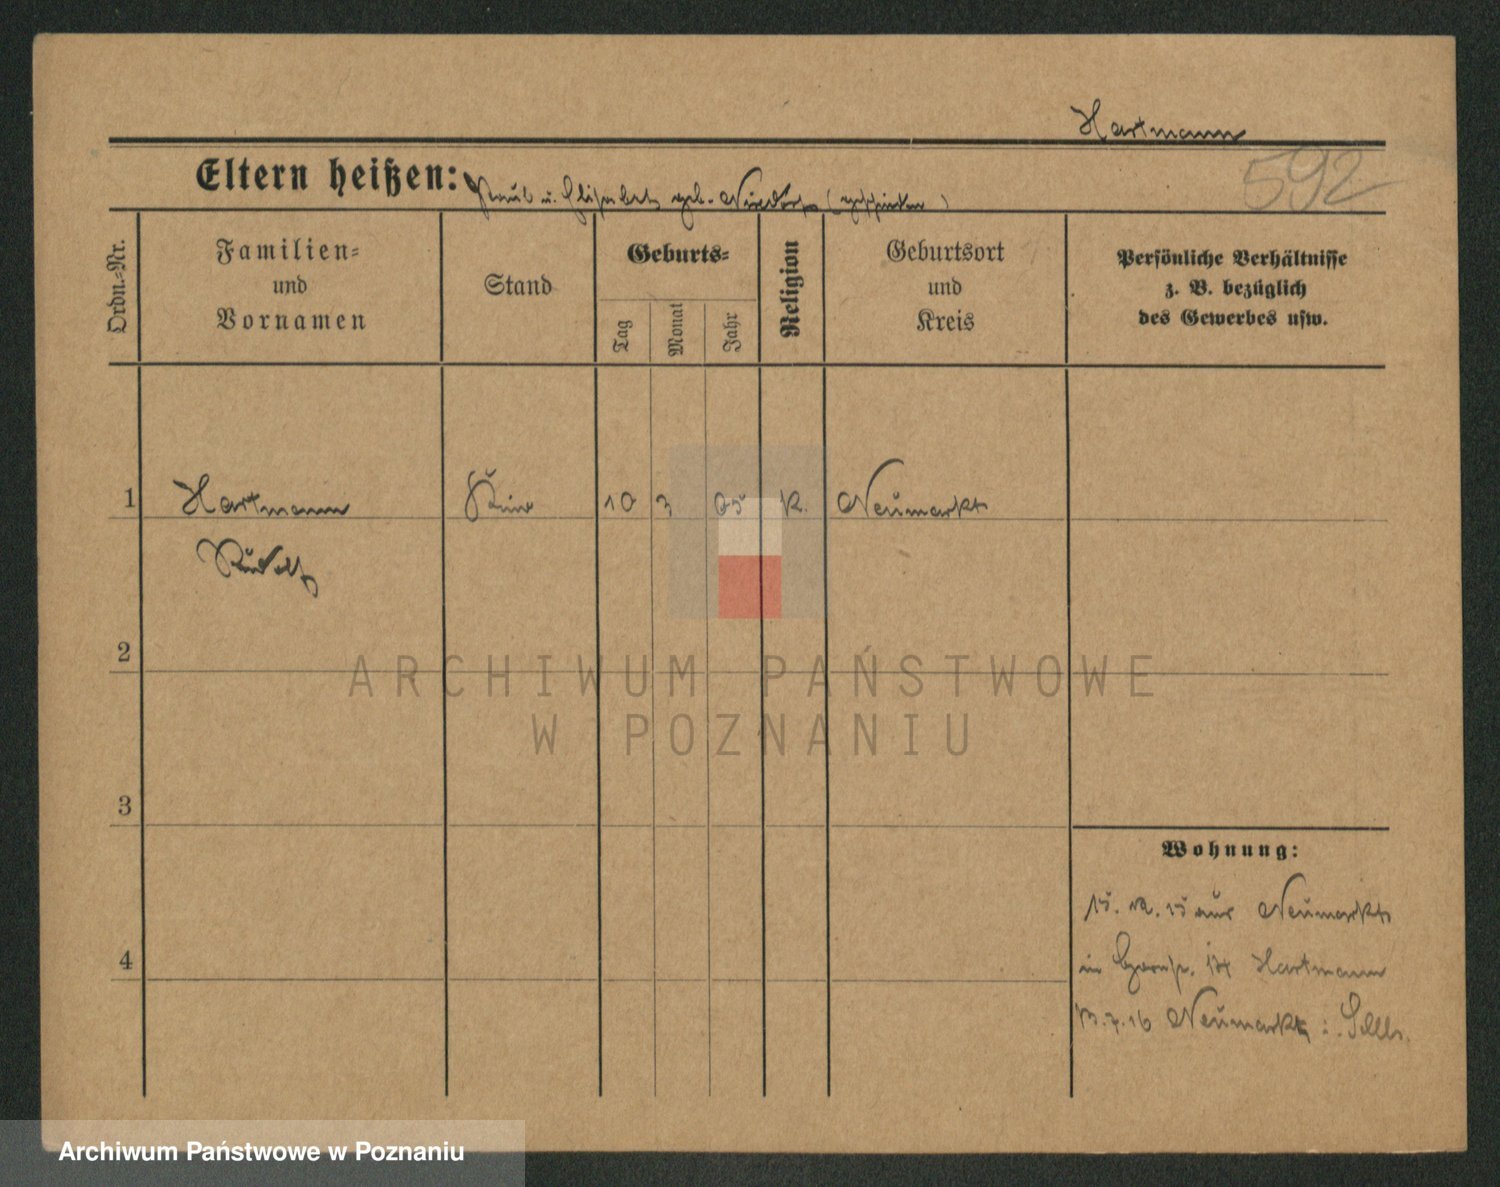 Hartmann
592
Eltern heißen: Paul u. Elisabeth geb. (geschieden)
Ordn.-Nr.
Familien-
und
Vornamen
Stand
Geburts-
Tag
Monat
Jahr
Religion
Geburtsort
und
Kreis
Persönliche Verhältnisse
z. B. bezüglich
des Gewerbes usw.
1 Hartmann Kind 10 3 05 K. Neumarkt
Rudolf
2
ARCHIWUM PAŃSTWOWE
W POZNANIU
3
Wohnung:
15. 12. 15 aus Neumarkt
4
in Hartmann
13.7.16 Neumarkt
Archiwum Państwowe w Poznaniu